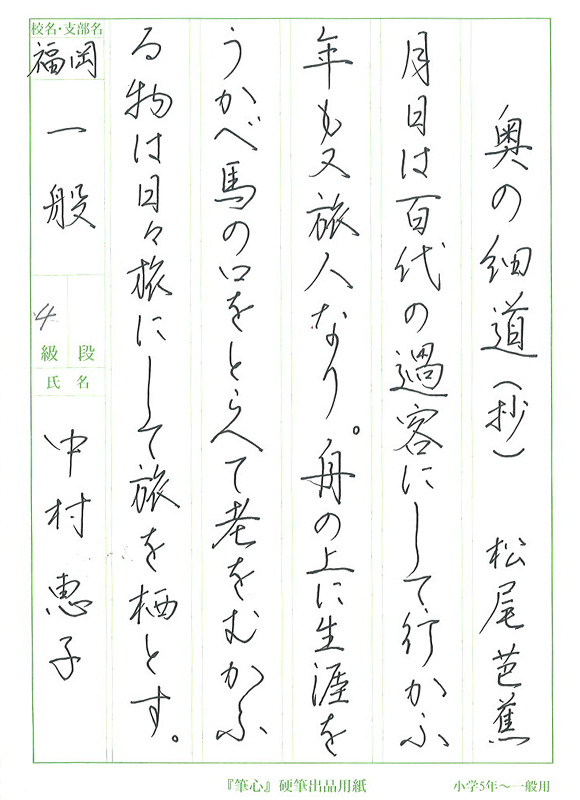 奥の細道(抄) 松尾芭蕉
月日は百代の過客にして行かふ
年も又旅人なり。舟の上に生涯を
うかべ馬の口をとらへて老をむかふ
る物は日々旅にして旅を栖とす。
校名・支部名
福岡
一般
4
級 段
氏名
中村恵子
『筆心』硬筆出品用紙
小学5年〜一般用